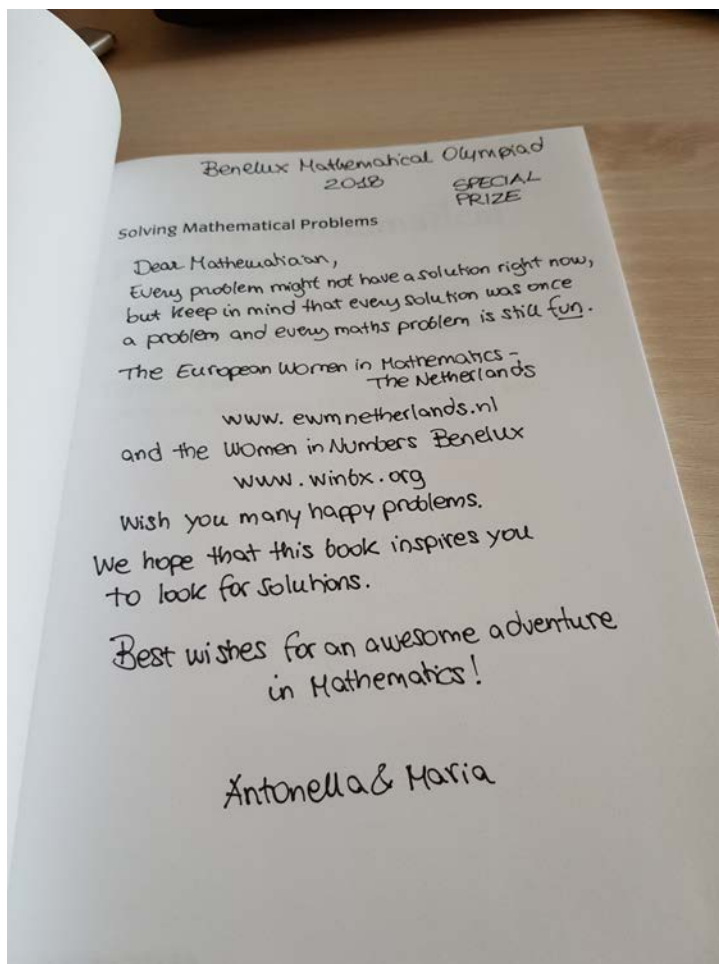 Benelux Mathematical Olympiad
2018
SPECIAL
PRIZE
Solving Mathematical Problems
Dear Mathematician,
Every problem might not have a solution right now,
but keep in mind that every solution was once
a problem and every maths problem is still fun.
The European Women in Mathematics -
The Netherlands
www.ewmnetherlands.nl
and the Women in Numbers Benelux
www.winbx.org
wish you many happy problems.
We hope that this book inspires you
to look for solutions.
Best wishes for an awesome adventure
in Mathematics!
Antonella & Maria